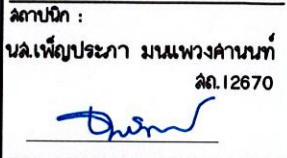 สถาปนิก :
นส.เพ็ญประภา มนแพวงศานนท์
สถ.12670